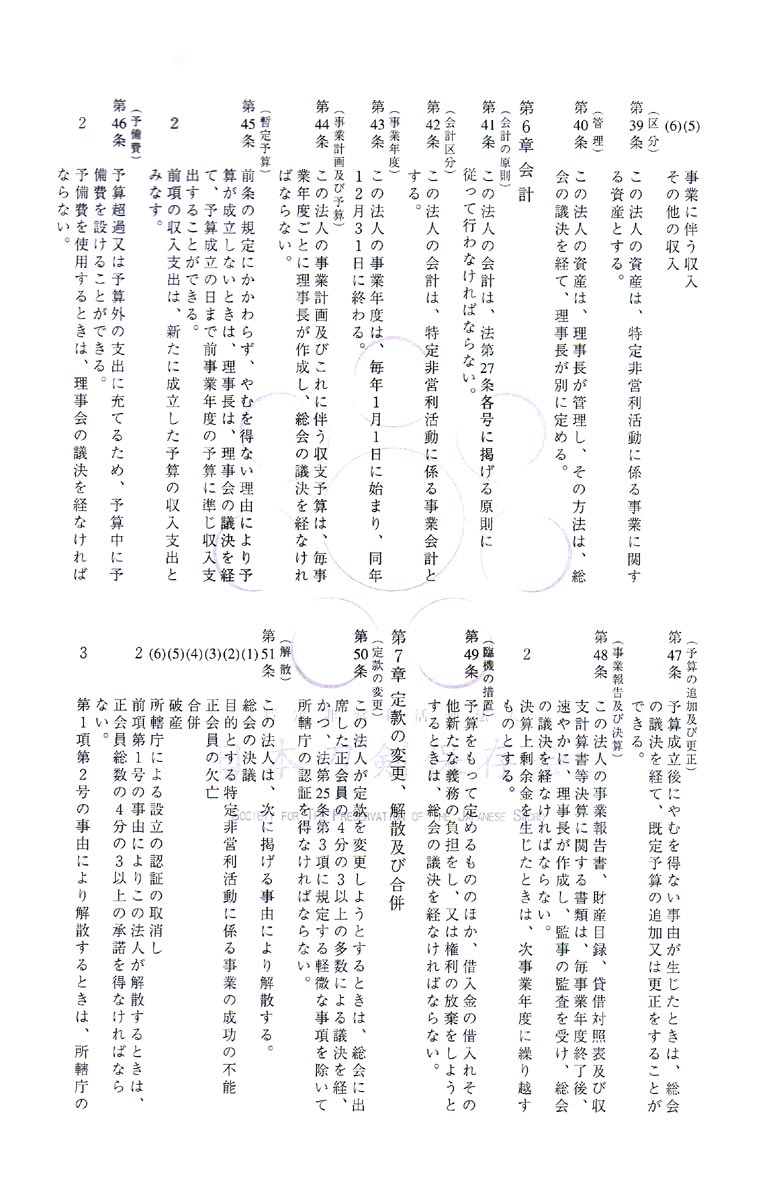 (5) 事業に伴う収入
(6) その他の収入
（区 分）
第39条 この法人の資産は、特定非営利活動に係る事業に関す
る資産とする。
（管 理）
第40条 この法人の資産は、理事長が管理し、その方法は、総
会の議決を経て、理事長が別に定める。
第6章 会 計
（会計の原則）
第41条 この法人の会計は、法第27条各号に掲げる原則に
従って行わなければならない。
（会計区分）
第42条 この法人の会計は、特定非営利活動に係る事業会計と
する。
（事業年度）
第43条 この法人の事業年度は、毎年1月1日に始まり、同年
12月31日に終わる。
（事業計画及び予算）
第44条 この法人の事業計画及びこれに伴う収支予算は、毎事
業年度ごとに理事長が作成し、総会の議決を経なけれ
ばならない。
（暫定予算）
第45条 前条の規定にかかわらず、やむを得ない理由により予
算が成立しないときは、理事長は、理事会の議決を経
て、予算成立の日まで前事業年度の予算に準じ収入支
出することができる。
2 前項の収入支出は、新たに成立した予算の収入支出と
みなす。
（予備費）
第46条 予算超過又は予算外の支出に充てるため、予算中に予
備費を設けることができる。
2 予備費を使用するときは、理事会の議決を経なければ
ならない。
（予算の追加及び更正）
第47条 予算成立後にやむを得ない事由が生じたときは、総会
の議決を経て、既定予算の追加又は更正をすることが
できる。
（事業報告及び決算）
第48条 この法人の事業報告書、財産目録、貸借対照表及び収
支計算書等決算に関する書類は、毎事業年度終了後、
速やかに、理事長が作成し、監事の監査を受け、総会
の議決を経なければならない。
2 決算上剰余金を生じたときは、次事業年度に繰り越す
ものとする。
（臨機の措置）
第49条 予算をもって定めるもののほか、借入金の借入れその
他新たな義務の負担をし、又は権利の放棄をしようと
するときは、総会の議決を経なければならない。
第7章 定款の変更、解散及び合併
（定款の変更）
第50条 この法人が定款を変更しようとするときは、総会に出
席した正会員の4分の3以上の多数による議決を経、
かつ、法第25条第3項に規定する軽微な事項を除いて
所轄庁の認証を得なければならない。
（解 散）
第51条 この法人は、次に掲げる事由により解散する。
(1) 総会の決議
(2) 目的とする特定非営利活動に係る事業の成功の不能
(3) 正会員の欠亡
(4) 合併
(5) 破産
(6) 所轄庁による設立の認証の取消し
2 前項第1号の事由によりこの法人が解散するときは、
正会員総数の4分の3以上の承諾を得なければなら
ない。
3 第1項第2号の事由により解散するときは、所轄庁の
SOCIETY FOR THE PRESERVATION OF THE JAPANESE SWORD